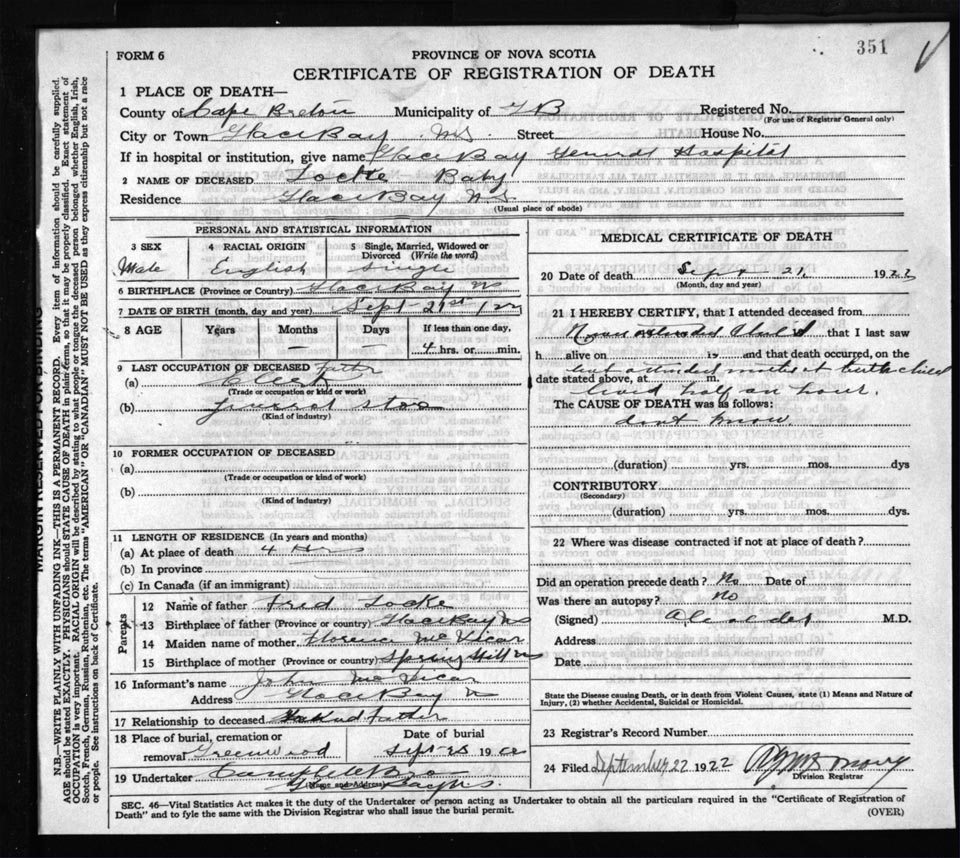 351
FORM 6
PROVINCE OF NOVA SCOTIA
CERTIFICATE OF REGISTRATION OF DEATH
1 PLACE OF DEATH—
County of Cape Breton Municipality of G B Registered No.
(For use of Registrar General only)
City or Town Glace Bay N S Street House No.
If in hospital or institution, give name Glace Bay General Hospital
2 NAME OF DECEASED Locke Baby
Residence Glace Bay N. S.
(Usual place of abode)
PERSONAL AND STATISTICAL INFORMATION
3 SEX 4 RACIAL ORIGIN 5 Single, Married, Widowed or Divorced (Write the word)
Male English Single
6 BIRTHPLACE (Province or Country) Glace Bay NS
7 DATE OF BIRTH (month, day and year) Sept 21st / 22
8 AGE Years Months Days If less than one day,
— — 4 hrs. or min.
9 LAST OCCUPATION OF DECEASED Father
(a) Clerk
(Trade or occupation or kind or work)
(b) General Store
(Kind of industry)
10 FORMER OCCUPATION OF DECEASED
(a)
(Trade or occupation or kind of work)
(b)
(Kind of industry)
11 LENGTH OF RESIDENCE (In years and months)
(a) At place of death 4 Hrs
(b) In province
(c) In Canada (if an immigrant)
Parents
12 Name of father Fred Locke
13 Birthplace of father (Province or country) Glace Bay NS
14 Maiden name of mother Florence McVicar
15 Birthplace of mother (Province or country) Spring Hill NS
16 Informant's name John McVicar
Address Glace Bay N
17 Relationship to deceased Grand father
18 Place of burial, cremation or removal Greenwood
Date of burial Sept 19 22
19 Undertaker Campbell
(Name and Address)
MEDICAL CERTIFICATE OF DEATH
20 Date of death Sept 21, 1922
(Month, day and year)
21 I HEREBY CERTIFY, that I attended deceased from
Never attended Child that I last saw
h alive on 19 and that death occurred, on the
but attended mother at birth child
date stated above, at m.
lived half an hour.
The CAUSE OF DEATH was as follows:
dont know
(duration) yrs. mos. dys
CONTRIBUTORY
(Secondary)
(duration) yrs. mos. dys.
22 Where was disease contracted if not at place of death?
Did an operation precede death? No Date of
Was there an autopsy? No
(Signed) M.D.
Address
Date
State the Disease causing Death, or in death from Violent Causes, state (1) Means and Nature of Injury, (2) whether Accidental, Suicidal or Homicidal.
23 Registrar's Record Number
24 Filed September 22 1922
Division Registrar
SEC. 46—Vital Statistics Act makes it the duty of the Undertaker or person acting as Undertaker to obtain all the particulars required in the "Certificate of Registration of
Death" and to fyle the same with the Division Registrar who shall issue the burial permit.
(OVER)
MARGIN RESERVED FOR BINDING
N.B.—WRITE PLAINLY WITH UNFADING INK—THIS IS A PERMANENT RECORD. Every item of information should be carefully supplied.
AGE should be stated EXACTLY. PHYSICIANS should STATE CAUSE OF DEATH in plain terms, so that it may be properly classified. Exact statement of
OCCUPATION is very important. RACIAL ORIGIN will be described by stating to what people or tongue the deceased person belonged whether English, Irish,
Scotch, French, German, Russian, Ruthenian, etc. The terms "AMERICAN" OR "CANADIAN" MUST NOT BE USED as they express citizenship but not a race
or people. See instructions on back of Certificate.